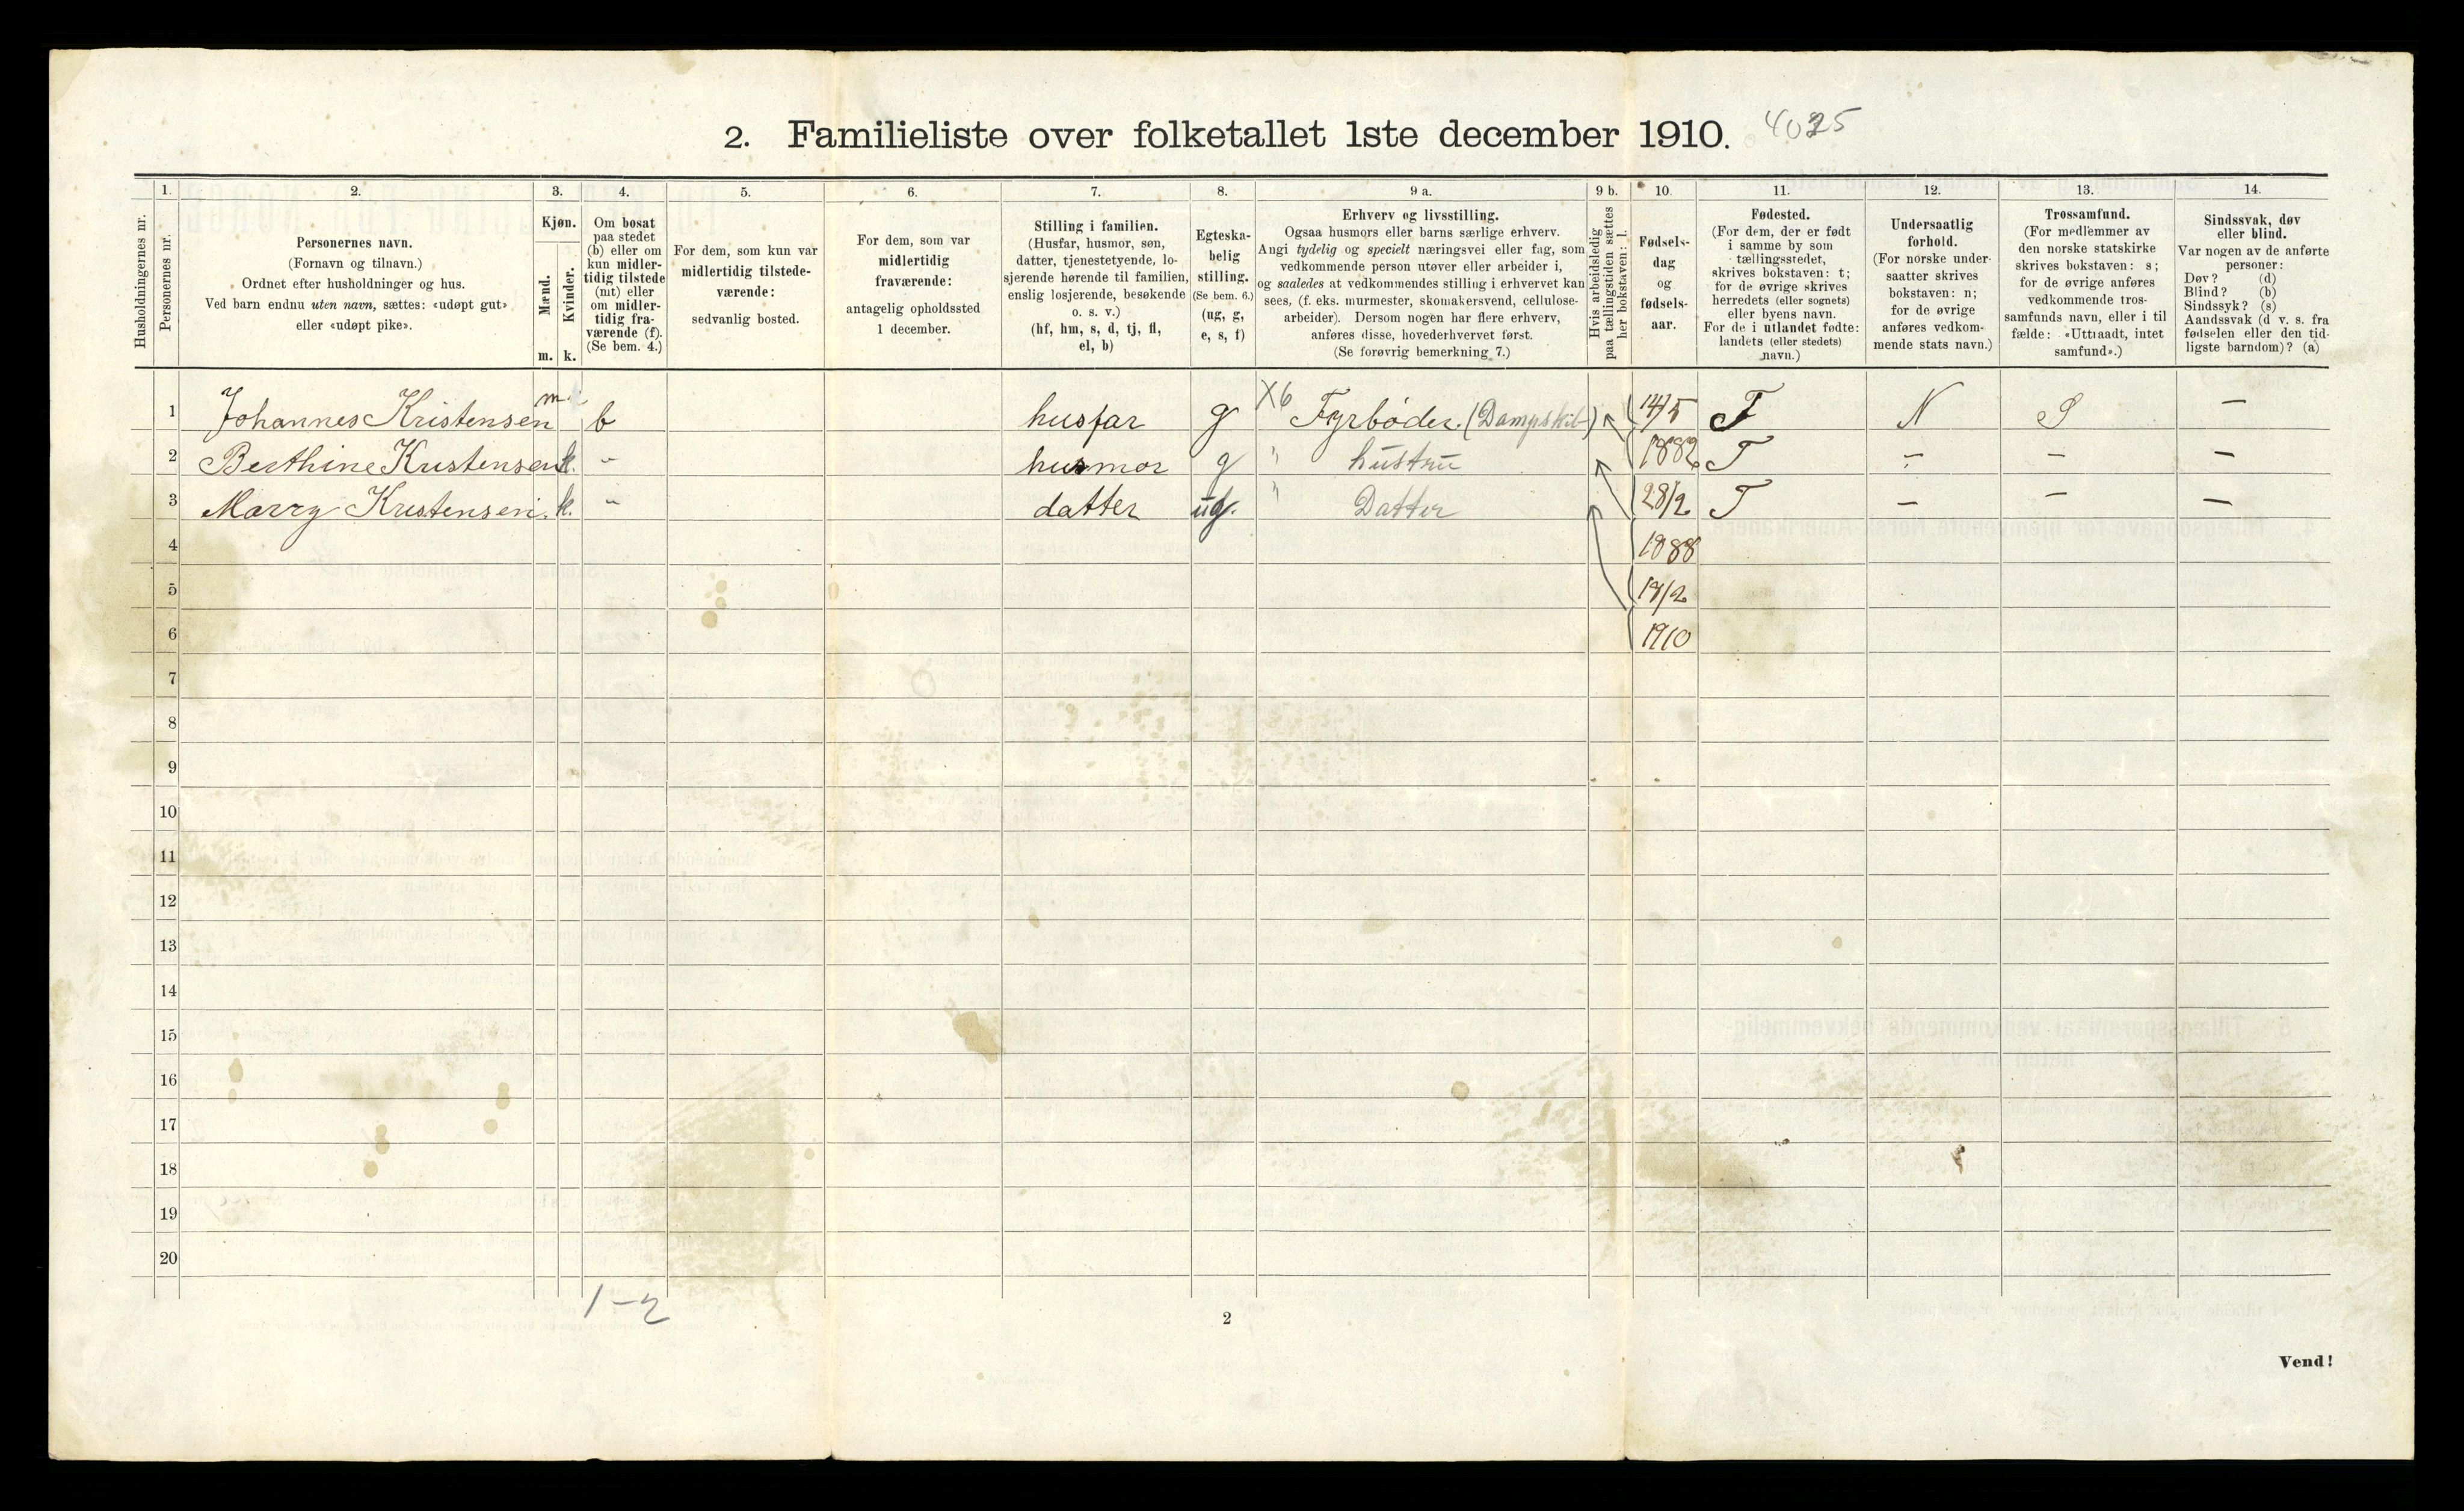 2. Familieliste over folketallet 1ste december 1910. 4025
Husholdningernes nr.
1.
Personernes nr.
2.
Personernes navn.
(Fornavn og tilnavn.)
Ordnet efter husholdninger og hus.
Ved barn endnu uten navn, sættes: «udøpt gut»
eller «udøpt pike».
3.
Kjøn.
Mænd.
Kvinder.
m. k.
4.
Om bosat
paa stedet
(b) eller om
kun midler-
tidig tilstede
(mt) eller
om midler-
tidig fra-
værende (f).
(Se bem. 4.)
5.
For dem, som kun var
midlertidig tilstede-
værende:
sedvanlig bosted.
6.
For dem, som var
midlertidig
fraværende:
antagelig opholdssted
1 december.
7.
Stilling i familien.
(Husfar, husmor, søn,
datter, tjenestetyende, lo-
sjerende hørende til familien,
enslig losjerende, besøkende
o. s. v.)
(hf, hm, s, d, tj, fl,
el, b)
8.
Egteska-
belig
stilling.
(Se bem. 6.)
(ug, g,
e, s, f)
9 a.
Erhverv og livsstilling.
Ogsaa husmors eller barns særlige erhverv.
Angi tydelig og specielt næringsvei eller fag, som
vedkommende person utøver eller arbeider i,
og saaledes at vedkommendes stilling i erhvervet kan
sees, (f. eks. murmester, skomakersvend, cellulose-
arbeider). Dersom nogen har flere erhverv,
anføres disse, hovederhvervet først.
(Se forøvrig bemerkning 7.)
9 b.
Hvis arbeidsledig
paa tællingstiden sættes
her bokstaven: l.
10.
Fødsels-
dag
og
fødsels-
aar.
11.
Fødested.
(For dem, der er født
i samme by som
tællingsstedet,
skrives bokstaven: t;
for de øvrige skrives
herredets (eller sognets)
eller byens navn.
For de i utlandet fødte:
landets (eller stedets)
navn.)
12.
Undersaatlig
forhold.
(For norske under-
saatter skrives
bokstaven: n;
for de øvrige
anføres vedkom-
mende stats navn.)
13.
Trossamfund.
(For medlemmer av
den norske statskirke
skrives bokstaven: s;
for de øvrige anføres
vedkommende tros-
samfunds navn, eller i til
fælde: «Uttraadt, intet
samfund».)
14.
Sindssvak, døv
eller blind.
Var nogen av de anførte
personer:
Døv? (d)
Blind? (b)
Sindssyk? (s)
Aandssvak (d v. s. fra
fødselen eller den tid-
ligste barndom)? (a)
1 Johannes Kristensen m. b husfar g X6 Fyrbøder. (Dampskib) 14/5 T N S —
2 Berthine Kristensen k. - husmor g " hustru 1882 T - - -
3 Marry Kristensen. k. - datter ug. " Datter 28/2 T - - -
4 1888
5 19/2
6 1910
7
8
9
10
11
12
13
14
15
16
17
18
19
20
1-2
2
Vend!